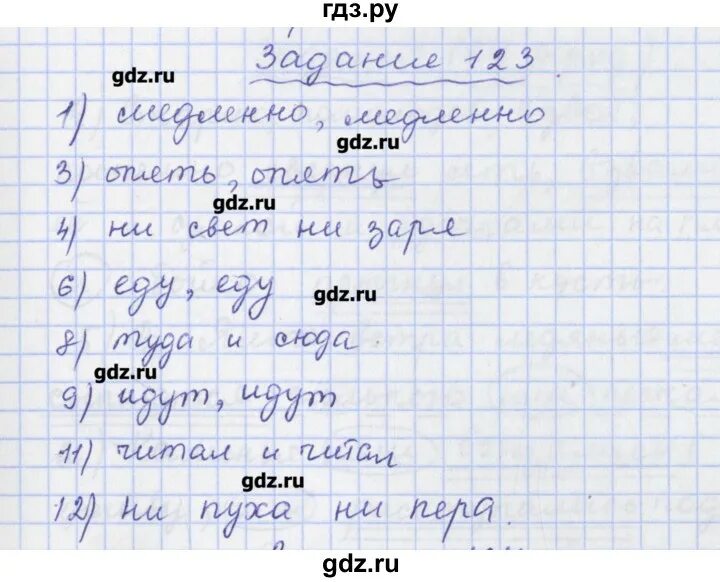 гдз.ру
Задание 123
gdz.ru
1) медленно, медленно
gdz.ru
3) опять, опять
gdz.ru
4) ни свет ни заря
6) еду, еду
gdz.ru
8) туда и сюда
gdz.ru
9) идут, идут
11) читал и читал
gdz.ru
12) ни пуха ни пера.
gdz.ru